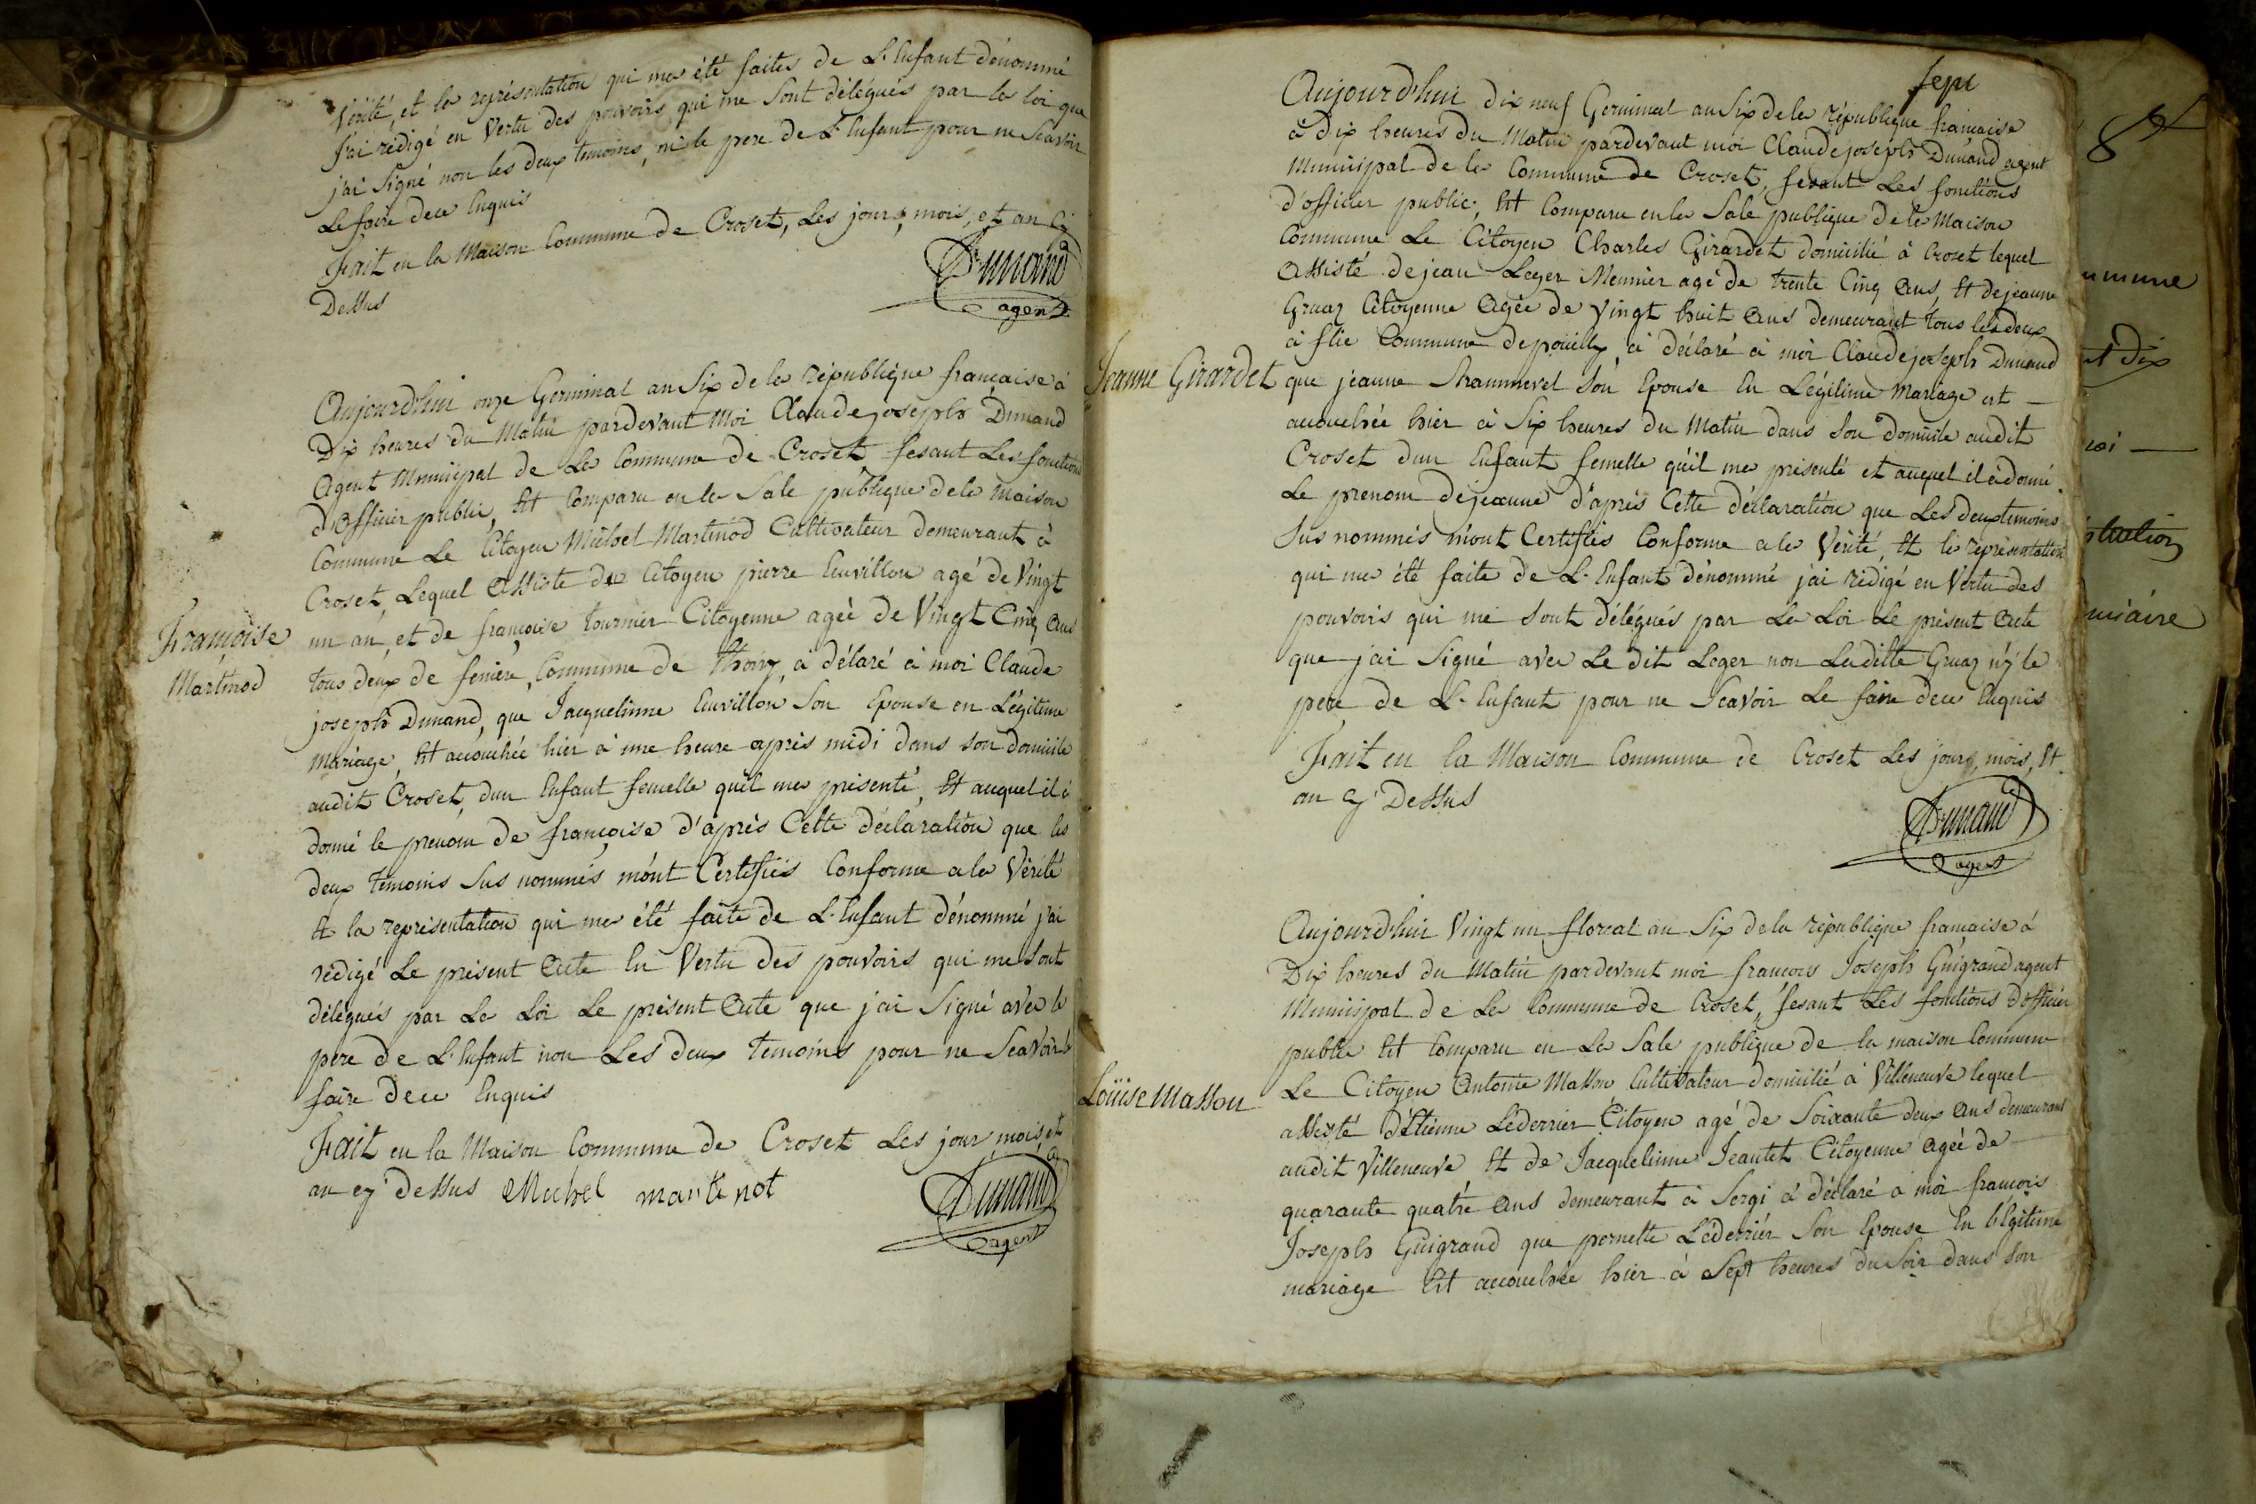 Vérité, et la représentation qui ma été faites de L'Enfant dénommé
j'ai rédigé en Vertu des pouvoirs qui me Sont délégués par la loi que
j'ai Signé non les deux temoins, ni le pere de L'Enfant pour ne Scavoir
Le faire dece Enquis
Fait en la Maison Commune de Croset, Les jour, mois, et an cy
Dessus
Dunand
agent
Aujourd'hui onze Germinal an Six de la république française à
Dix heures du Matin pardevant Moi Claude joseph Dunand
Agent Municipal de La Commune de Croset fesant Les fonctions
d'Officier public, Est Comparu en la Sale publique dela Maison
Commune Le Citoyen Michel Martinod Cultivateur demeurant à
Croset, Lequel Assiste du Citoyen pierre Cuvillon agé de Vingt
un an, et de françoise tournier Citoyenne agée de Vingt Cinq Ans
tous deux de feniere, Commune de thoiry, à délaré à moi Claude
joseph Dunand, que Jacquelinne Cuvillon Son Epouse en Légitime
Mariage, Est accouchée hier à une heure après midi dans Son domicile
audit Croset, dun Enfant femelle quil ma présenté, Et auquel il à
donné le prenom de françoise d'après Cette déclaration que les
deux temoins Sus nommés m'ont Certifiés Conforme a la Vérité
Et la représentation qui ma été faite de L'Enfant dénommé j'ai
rédigé Le présent Acte En Vertu des pouvoirs qui me Sont
délégués par La Loi Le présent Acte que j'ai Signé avec le
pere de L'Enfant non Les deux temoins pour ne Scavoir
faire dece Enquis
Fait en la Maison Commune de Croset Les jour, mois, et
an cy dessus Michel martinot
Dunand
agent
Françoise
Martinod
sept
Aujourd'hui dix neuf Germinal an Six de la république française
à dix heures du Matin pardevant moi Claude joseph Dunand agent
Municipal de la Commune de Croset, fesant Les fonctions
d'officier public, Est Comparu en la Sale publique de la Maison
Commune Le Citoyen Charles Girardet domicilié à Croset lequel
Assisté de jean Leger Meunier agé de trente Cinq Ans, Et de jeanne
Gruaz Citoyenne Agée de Vingt huit Ans demeurant tous les deux
à flie Commune de pouilly, à déclaré à moi Claude joseph Dunand
que jeanne Son Epouse En Légitime Mariage est
accouchée hier à Six heures du Matin dans Son domicile audit
Croset dun Enfant femelle qu'il ma présenté et auquel il à donné
Le prenom de jeanne d'après Cette déclaration que Les deux temoins
Sus nommés m'ont Certifiés Conforme a la Vérité, Et la représentation
qui ma été faite de L'Enfant dénommé j'ai rédigé en Vertu des
pouvoirs qui me Sont délégués par La Loi Le présent Acte
que j'ai Signé avec Le dit Leger non Laditte Gruaz n'y le
pere de L'Enfant pour ne Scavoir Le faire dece Enquis
Fait en la Maison Commune de Croset Les jour, mois, Et
an cy Dessus
Dunand
agent
Jeanne Girardet
Aujourd'hui Vingt un floreal an Six de la république française à
Dix heures du Matin pardevant moi francois Joseph Guigrand agent
Municipal de La Commune de Croset, fesant Les fonctions d'officier
public Est Comparu en La Sale publique de la maison Commune
Le Citoyen Antoine Masson Cultivateur domicilié à Villeneuve lequel
assisté d'Etienne Léderrier Citoyen agé de Soixante deux Ans demeurant
audit Villeneuve Et de Jacquelinne Jeantet Citoyenne Agée de
quarante quatre Ans demeurant à Sergi à déclaré a moi francois
Joseph Guigrand que pernette Léderrier Son Epouse En légitime
mariage Est accouchée hier à Sept heures du Soir dans Son
Loüise Masson
8
mmune
t dix